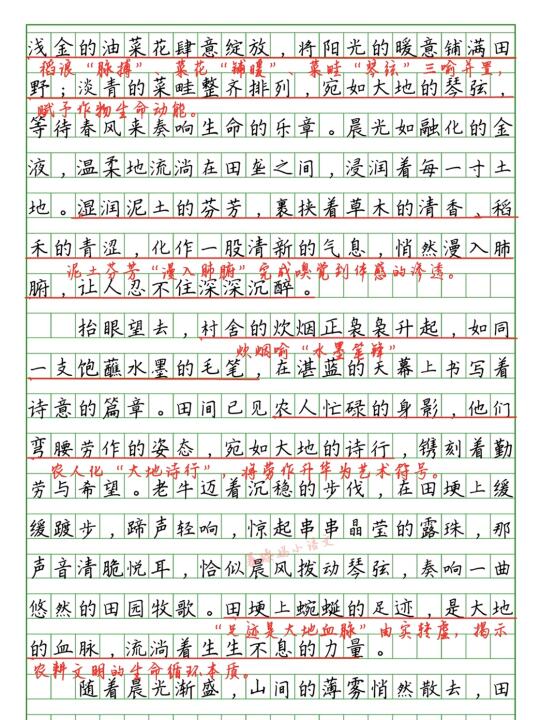 浅金的油菜花肆意绽放，将阳光的暖意铺满田
稻浪“脉搏” 菜花“铺暖”、菜畦“琴弦”三喻并置，
野；淡青的菜畦整齐排列，宛如大地的琴弦，
赋予作物生命动能。
等待春风来奏响生命的乐章。晨光如融化的金
液，温柔地流淌在田垄之间，浸润着每一寸土
地。湿润泥土的芬芳，裹挟着草木的清香、稻
禾的青涩，化作一股清新的气息，悄然漫入肺
泥土芬芳“漫入肺腑”完成嗅觉到体感的渗透。
腑，让人忍不住深深沉醉。
抬眼望去，村舍的炊烟正袅袅升起，如同
炊烟喻“水墨笔锋”
一支饱蘸水墨的毛笔，在湛蓝的天幕上书写着
诗意的篇章。田间已见农人忙碌的身影，他们
弯腰劳作的姿态，宛如大地的诗行，镌刻着勤
农人化“大地诗行”，将劳作升华为艺术符号。
劳与希望。老牛迈着沉稳的步伐，在田埂上缓
缓踱步，蹄声轻响，惊起串串晶莹的露珠，那
声音清脆悦耳，恰似晨风拨动琴弦，奏响一曲
悠然的田园牧歌。田埂上蜿蜒的足迹，是大地
“足迹是大地血脉”由实转虚，揭示
的血脉，流淌着生生不息的力量。
农耕文明的生命循环本质。
随着晨光渐盛，山间的薄雾悄然散去，田